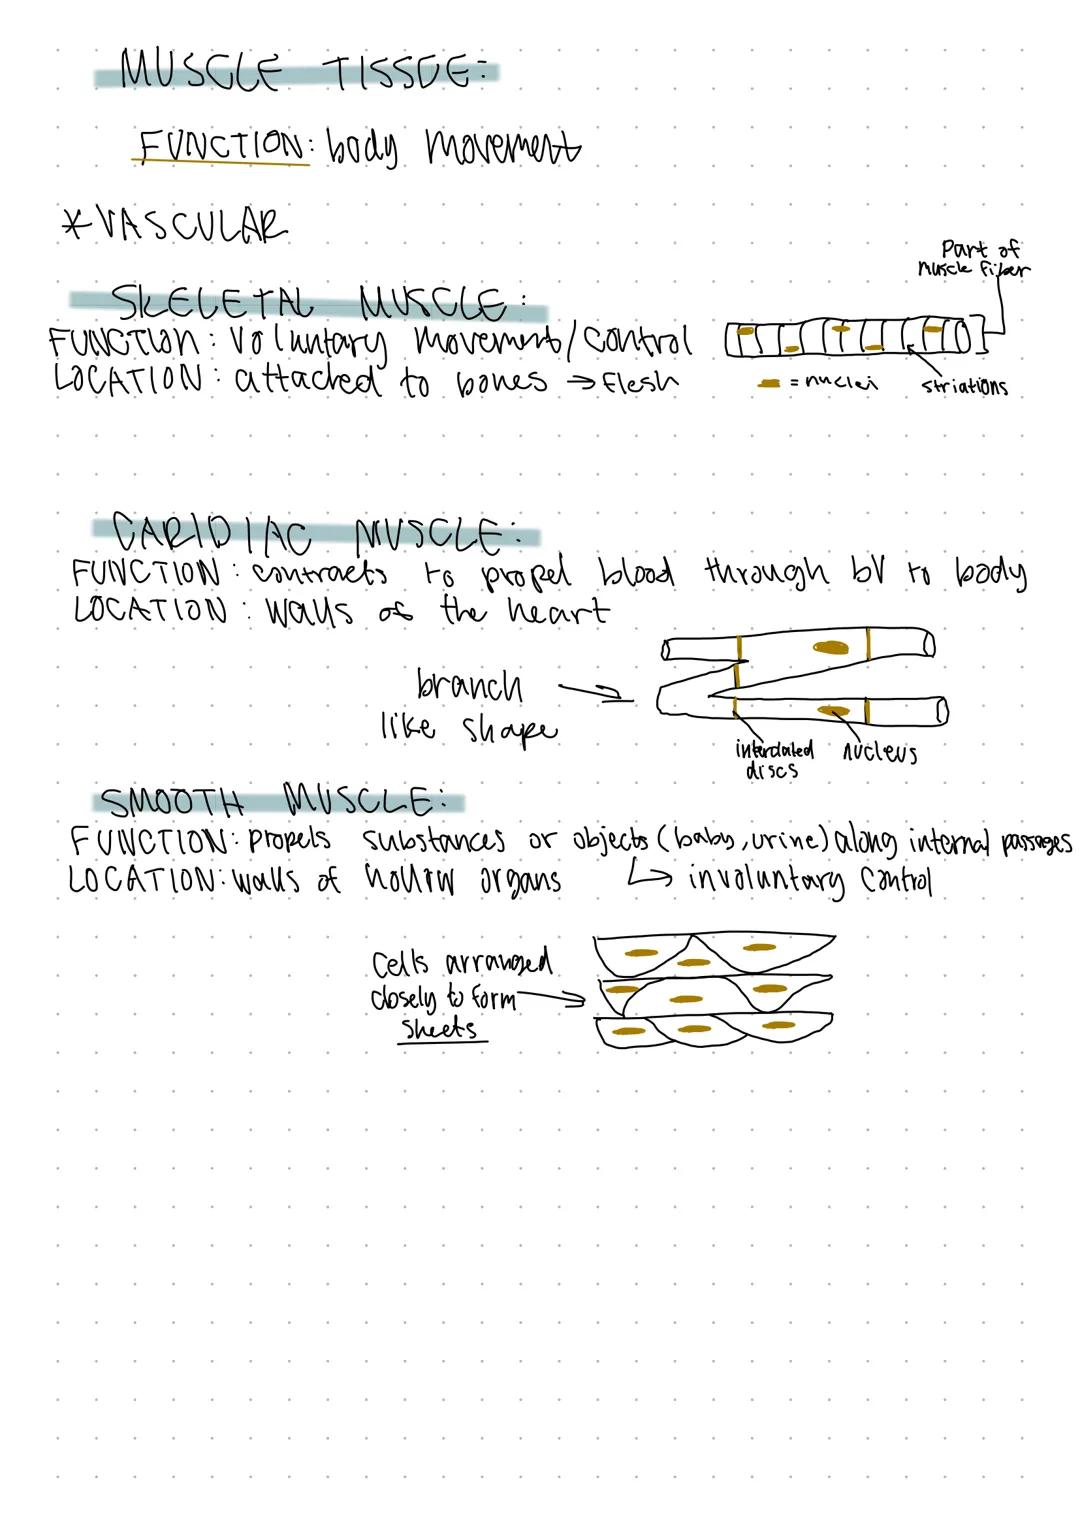 MUSCLE TISSUE:
FUNCTION: body movement
*VASCULAR
Part of
muscle fiber
SKELETAL MUSCLE:
FUNCTION: Voluntary movement/control
LOCATION: attached to bones → flesh
= nuclei
striations
CARIDIAC MUSCLE:
FUNCTION: contracts to propel blood through bV to body
LOCATION: walls of the heart
branch
like shape
nucleus
discs
SMOOTH MUSCLE:
FUNCTION: propels substances or objects (baby, urine) along internal passages
LOCATION: walls of hollow organs ↳ involuntary control
Cells arranged
closely to form
sheets